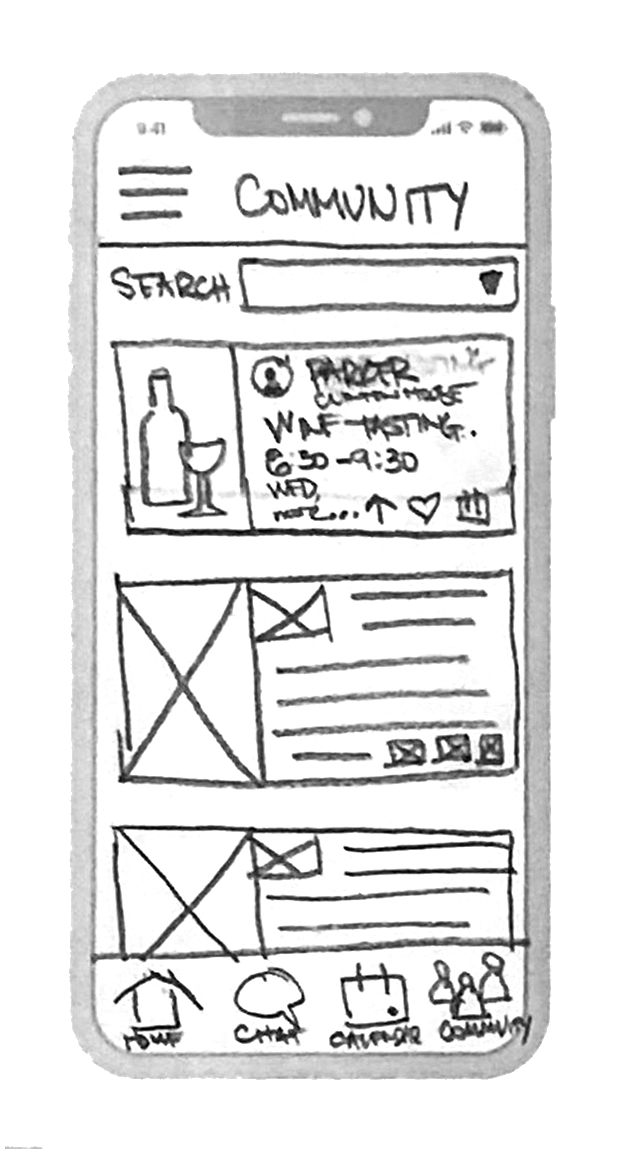 9:41
COMMUNITY
SEARCH
PARKER
CLINTON HOUSE
WINE TASTING.
6:30-9:30
WED.
more...
HOME
CHAT
CALENDAR
COMMUNITY